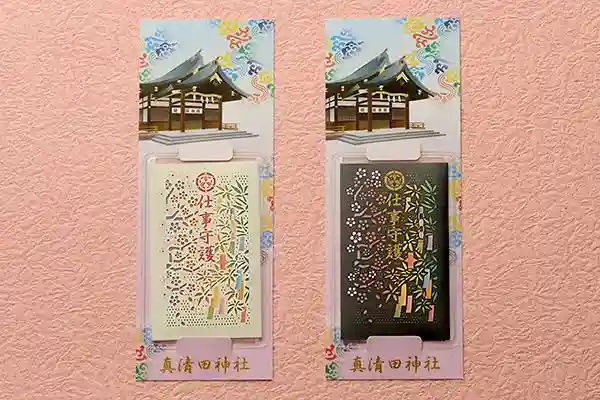 仕事守護
真清田神社
仕事守護
真清田神社